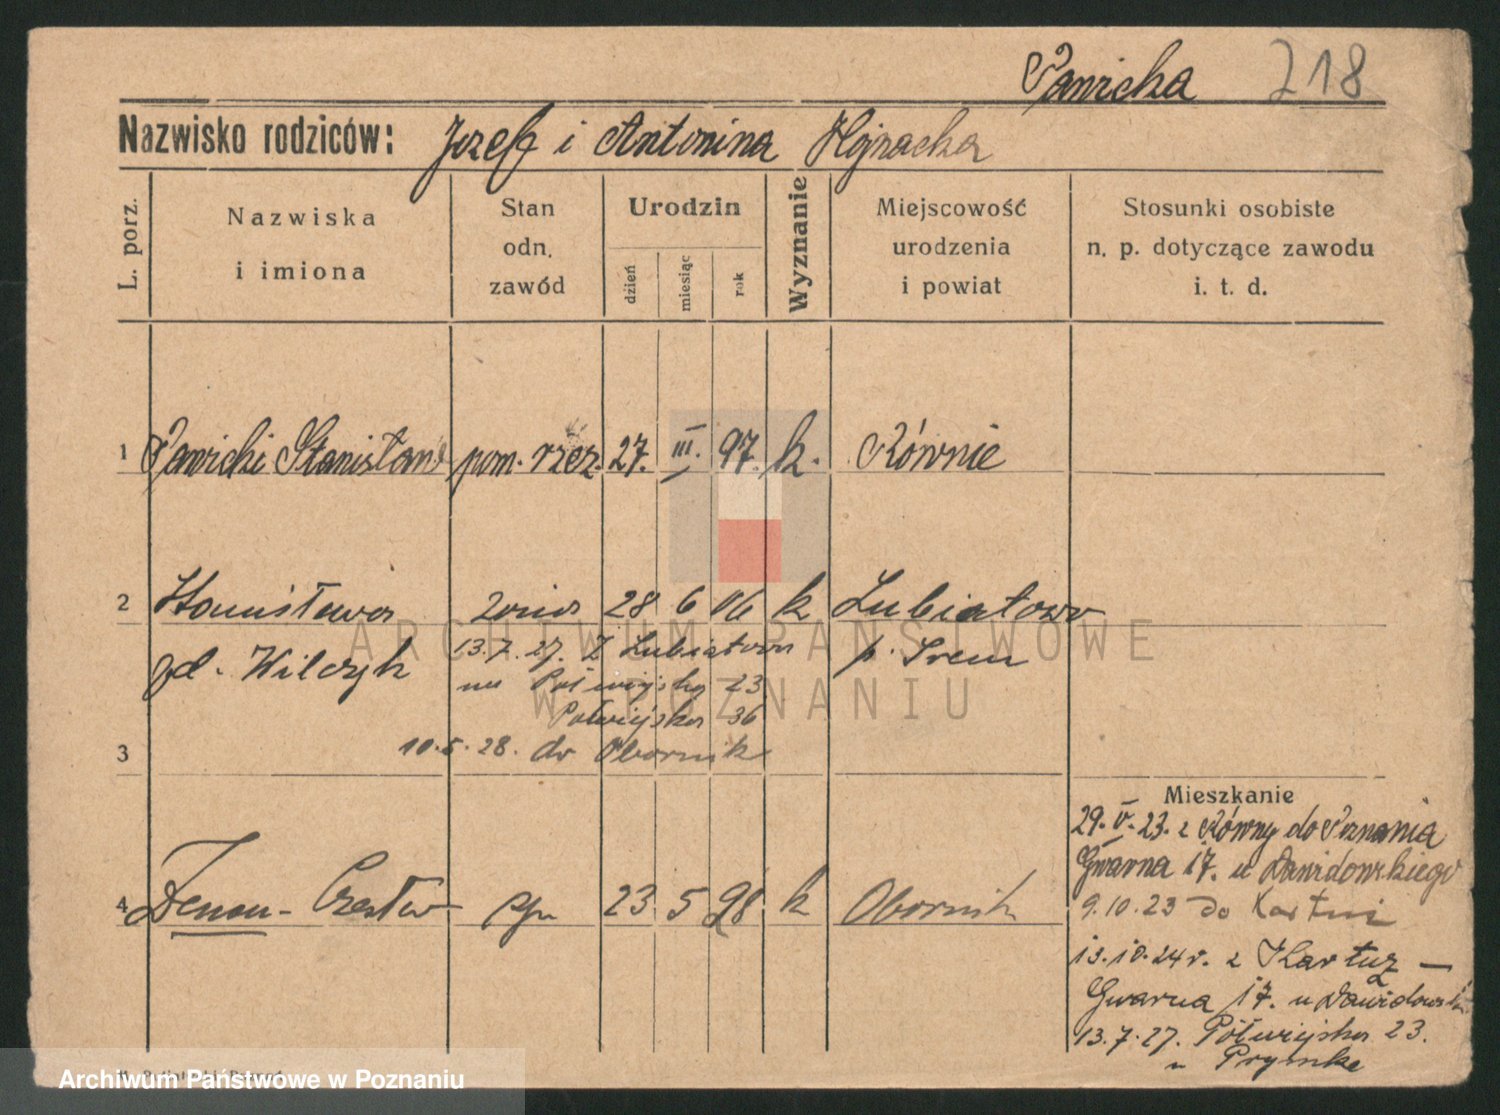 Pawicka 218
Nazwisko rodziców: Józef i Antonina Hojnacka
L. porz.
Nazwiska i imiona
Stan odn. zawód
Urodzin
dzień
miesiąc
rok
Wyznanie
Miejscowość urodzenia i powiat
Stosunki osobiste n. p. dotyczące zawodu i. t. d.
1 Pawicki Stanisław pom. rzeź. 27. III. 97. k. Równie
2 Stanisława żona 28 6 06 k Lubiatowo
gd. Wilczyk 13.7.27. z Lubiatowa p. Śrem
na Półwiejską 23
Półwiejska 36
3 10.5.28. do Obornik
Mieszkanie
29.V.23. z Równy do Poznania
Gwarna 17. u Dawidowskiego
4 Zenon - Czesław syn 23 5 28 k Obornik
9.10.23 do Kartuz
13.10.24 r. z Kartuz —
Gwarna 17. u
13.7.27. Półwiejska 23.
u
ARCHIWUM PAŃSTWOWE
W POZNANIU
Archiwum Państwowe w Poznaniu